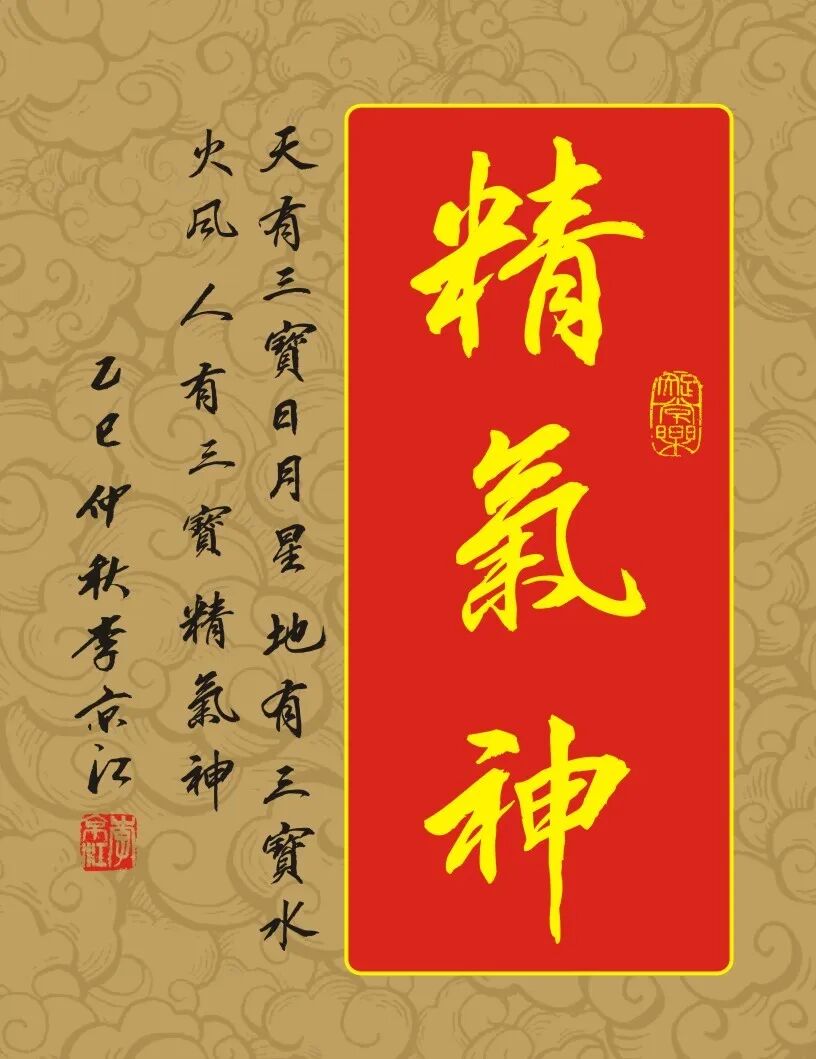 精氣神
知足常樂
天有三寶日月星地有三寶水
火風人有三寶精氣神
乙巳仲秋李京江
李京江